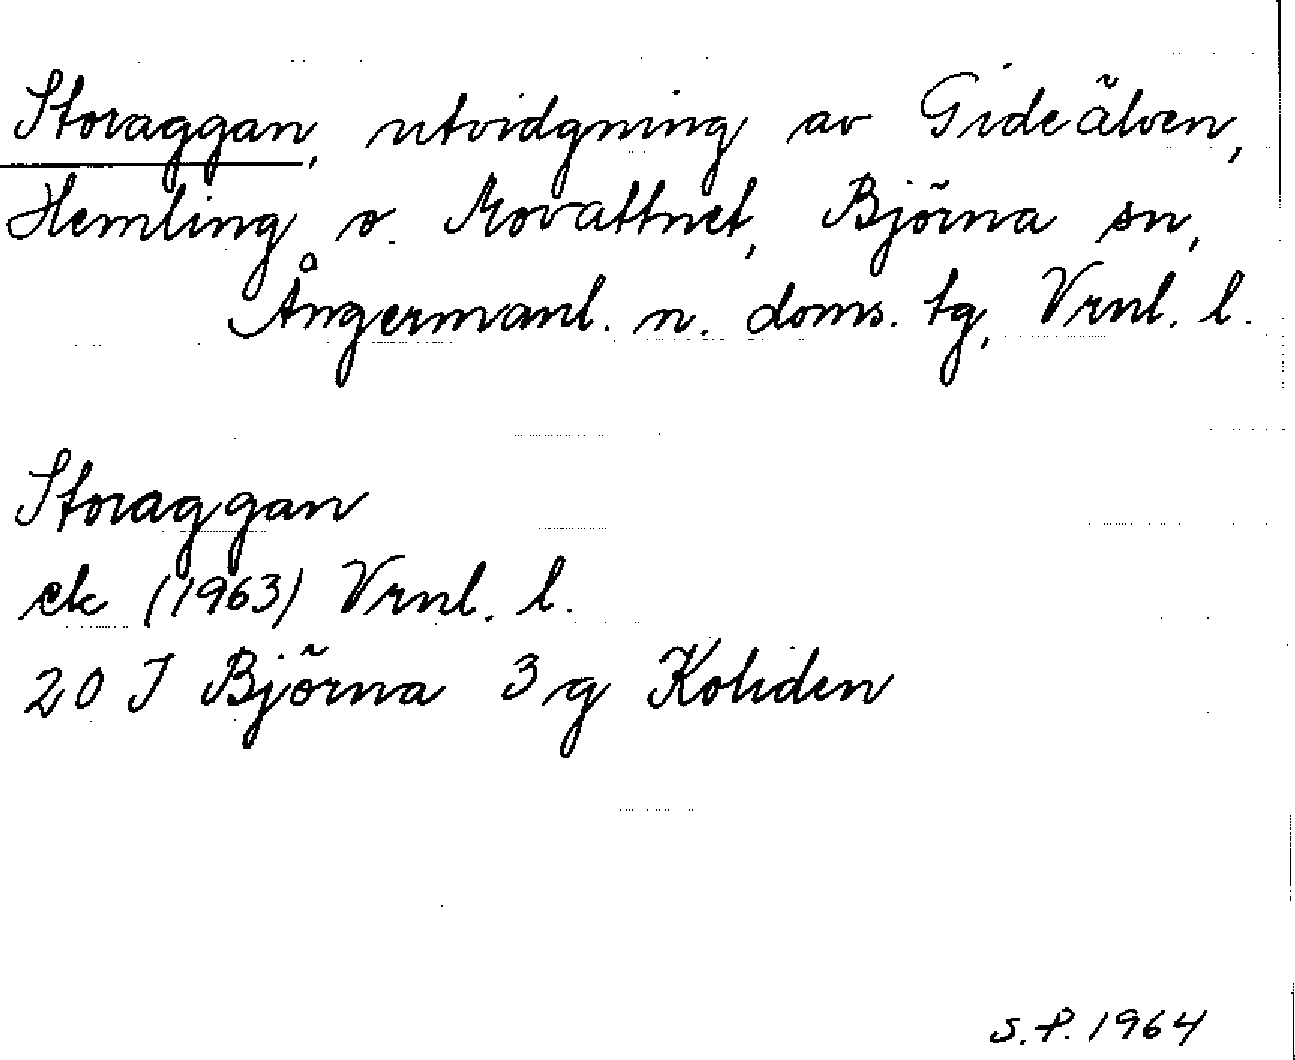 Storaggan, utvidgning av Gideälven,
Hemling o. Movattnet, Björna sn,
Ångermanl. n. doms. tg, Vrnl. l.
Storaggan
ek (1963) Vrnl. l.
20 I Björna 3 g Koliden
S.P. 1964